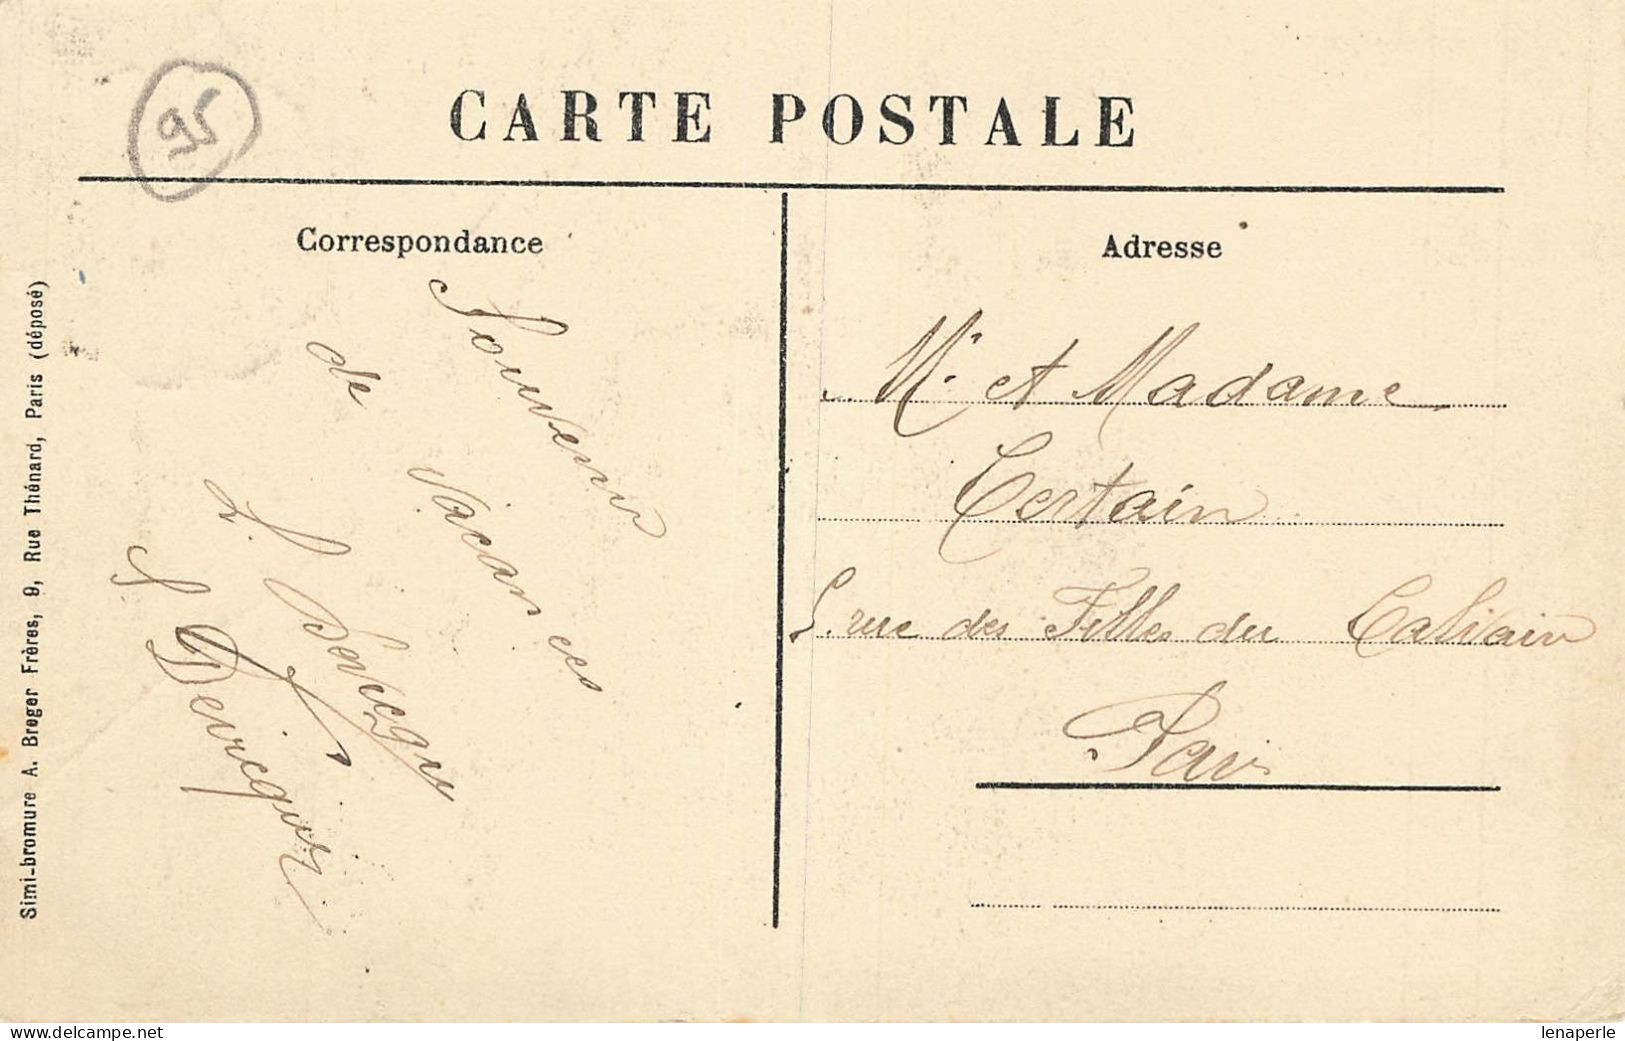 95
CARTE POSTALE
Correspondance
Adresse
Souvenir
de
vacances
L.
S
M. et Madame
Certain
5. rue des Filles du
Simi-bromure A. Breger Frères, 9, Rue Thénard, Paris (déposé)
www.delcampe.net
lenaperle